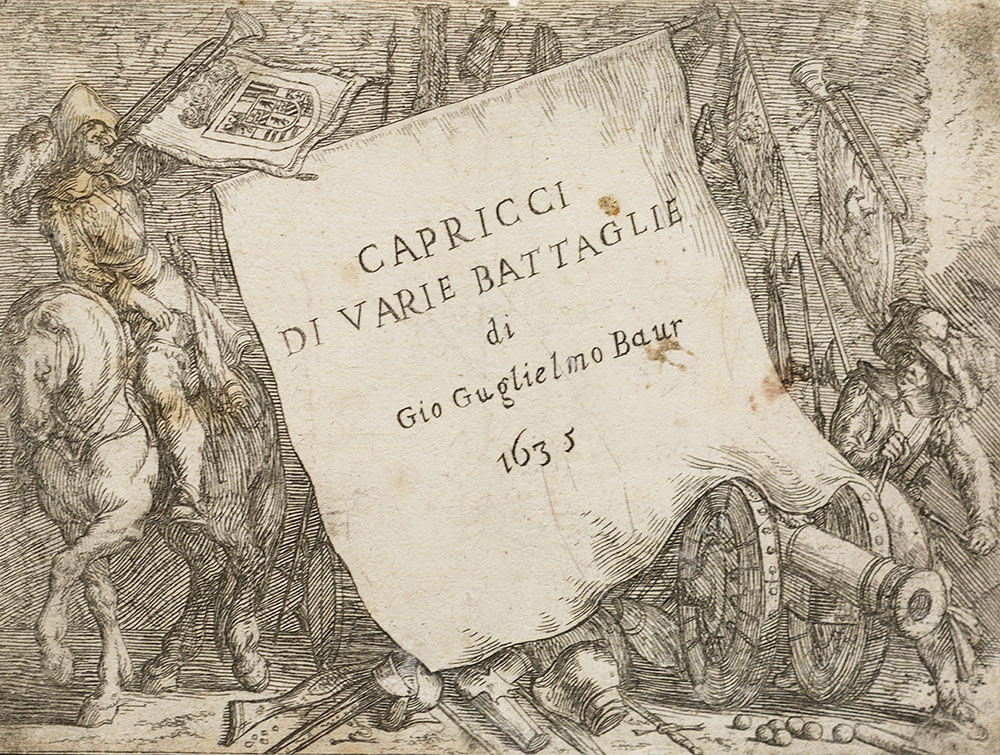 CAPRICCI
DI VARIE BATTAGLIE
di
Gio Guglielmo Baur
1635